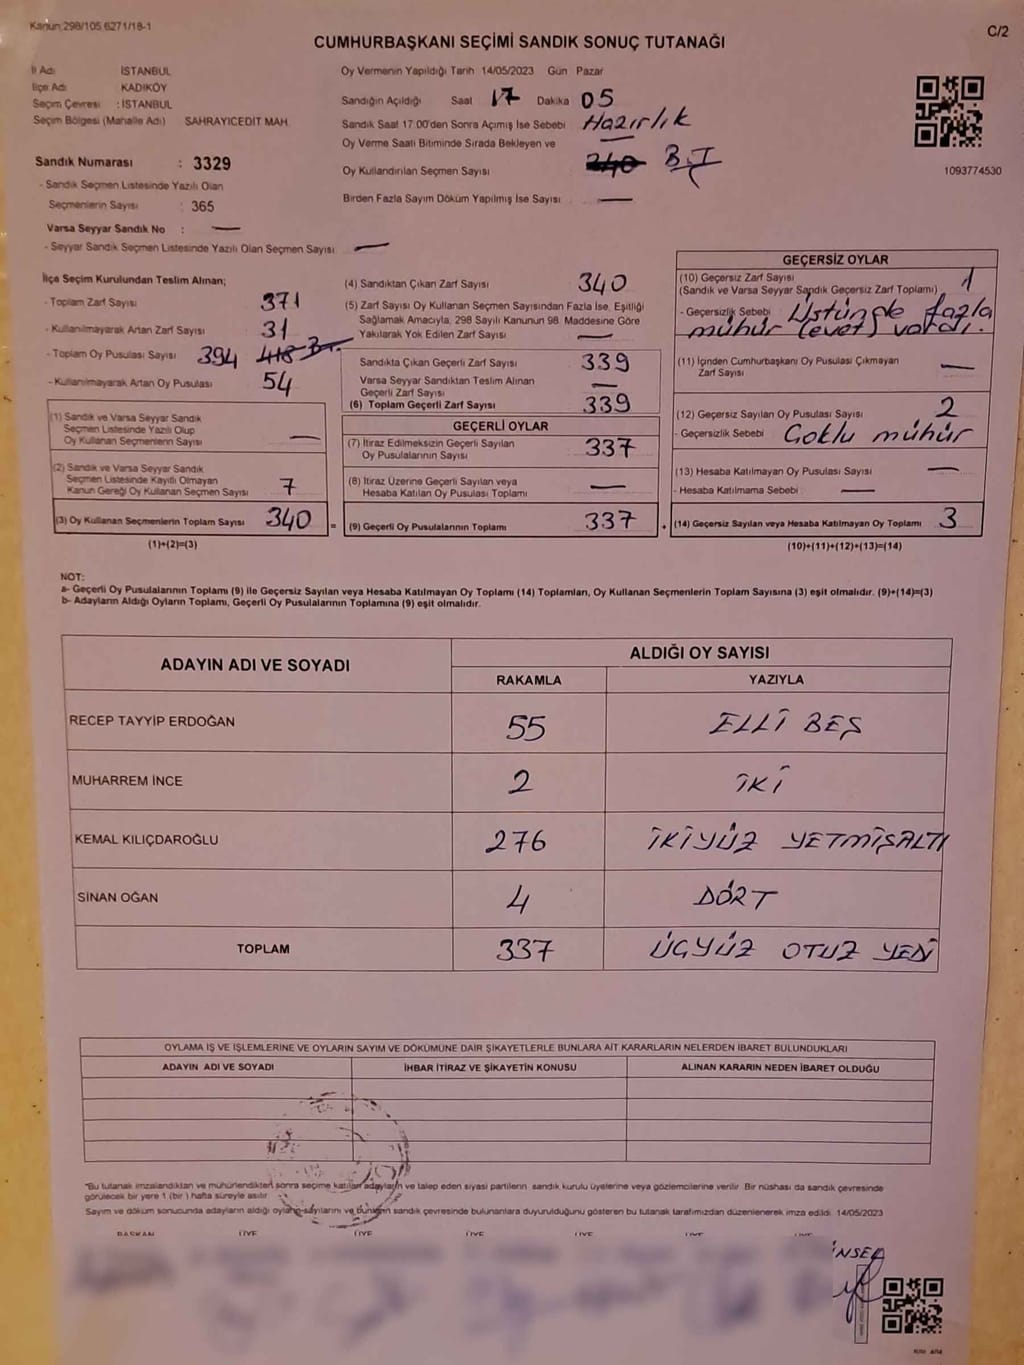 Kanun:298/105,6271/18-1
C/2
CUMHURBAŞKANI SEÇİMİ SANDIK SONUÇ TUTANAĞI
İl Adı İSTANBUL
İlçe Adı KADIKÖY
Seçim Çevresi : İSTANBUL
Seçim Bölgesi (Mahalle Adı) SAHRAYICEDİT MAH.
Sandık Numarası : 3329
- Sandık Seçmen Listesinde Yazılı Olan
Seçmenlerin Sayısı : 365
Varsa Seyyar Sandık No : —
- Seyyar Sandık Seçmen Listesinde Yazılı Olan Seçmen Sayısı —
Oy Vermenin Yapıldığı Tarih 14/05/2023 Gün Pazar
Sandığın Açıldığı Saat 17 Dakika 05
Sandık Saat 17:00'den Sonra Açımış İse Sebebi Hazırlık
Oy Verme Saati Bitiminde Sırada Bekleyen ve —
Oy Kullandırılan Seçmen Sayısı 340 B.T
Birden Fazla Sayım Döküm Yapılmış İse Sayısı —
1093774530
İlçe Seçim Kurulundan Teslim Alınan;
- Toplam Zarf Sayısı 371
- Kullanılmayarak Artan Zarf Sayısı 31
- Toplam Oy Pusulası Sayısı 394 418
- Kullanılmayarak Artan Oy Pusulası 54
(1) Sandık ve Varsa Seyyar Sandık
Seçmen Listesinde Yazılı Olup
Oy Kullanan Seçmenlerin Sayısı —
(2) Sandık ve Varsa Seyyar Sandık
Seçmen Listesinde Kayıtlı Olmayan
Kanun Gereği Oy Kullanan Seçmen Sayısı 7
(3) Oy Kullanan Seçmenlerin Toplam Sayısı 340 =
(1)+(2)=(3)
(4) Sandıktan Çıkan Zarf Sayısı 340
(5) Zarf Sayısı Oy Kullanan Seçmen Sayısından Fazla İse, Eşitliği
Sağlamak Amacıyla, 298 Sayılı Kanunun 98. Maddesine Göre
Yakılarak Yok Edilen Zarf Sayısı —
Sandıkta Çıkan Geçerli Zarf Sayısı 339
Varsa Seyyar Sandıktan Teslim Alınan
Geçerli Zarf Sayısı —
(6) Toplam Geçerli Zarf Sayısı 339
GEÇERLİ OYLAR
(7) İtiraz Edilmeksizin Geçerli Sayılan
Oy Pusulalarının Sayısı 337
(8) İtiraz Üzerine Geçerli Sayılan veya
Hesaba Katılan Oy Pusulası Toplamı —
(9) Geçerli Oy Pusulalarının Toplamı 337 +
GEÇERSİZ OYLAR
(10) Geçersiz Zarf Sayısı
(Sandık ve Varsa Seyyar Sandık Geçersiz Zarf Toplamı) 1
- Geçersizlik Sebebi Üstünde fazla
mühür (evet) vardı.
(11) İçinden Cumhurbaşkanı Oy Pusulası Çıkmayan
Zarf Sayısı —
(12) Geçersiz Sayılan Oy Pusulası Sayısı 2
- Geçersizlik Sebebi Çoklu mühür
(13) Hesaba Katılmayan Oy Pusulası Sayısı —
- Hesaba Katılmama Sebebi —
(14) Geçersiz Sayılan veya Hesaba Katılmayan Oy Toplamı 3
(10)+(11)+(12)+(13)=(14)
NOT:
a- Geçerli Oy Pusulalarının Toplamı (9) ile Geçersiz Sayılan veya Hesaba Katılmayan Oy Toplamı (14) Toplamları, Oy Kullanan Seçmenlerin Toplam Sayısına (3) eşit olmalıdır. (9)+(14)=(3)
b- Adayların Aldığı Oyların Toplamı, Geçerli Oy Pusulalarının Toplamına (9) eşit olmalıdır.
ADAYIN ADI VE SOYADI ALDIĞI OY SAYISI
RAKAMLA YAZIYLA
RECEP TAYYİP ERDOĞAN 55 ELLİ BEŞ
MUHARREM İNCE 2 İKİ
KEMAL KILIÇDAROĞLU 276 İKİYÜZ YETMİŞALTI
SİNAN OĞAN 4 DÖRT
TOPLAM 337 ÜÇYÜZ OTUZ YEDİ
OYLAMA İŞ VE İŞLEMLERİNE VE OYLARIN SAYIM VE DÖKÜMÜNE DAİR ŞİKAYETLERLE BUNLARA AİT KARARLARIN NELERDEN İBARET BULUNDUKLARI
ADAYIN ADI VE SOYADI İHBAR İTİRAZ VE ŞİKAYETİN KONUSU ALINAN KARARIN NEDEN İBARET OLDUĞU
*Bu tutanak imzalandıktan ve mühürlendikten sonra seçime katılan adayların ve talep eden siyasi partilerin sandık kurulu üyelerine veya gözlemcilerine verilir. Bir nüshası da sandık çevresinde
görülecek bir yere 1 (bir) hafta süreyle asılır.
Sayım ve döküm sonucunda adayların aldığı oyların sayılarını ve bunların sandık çevresinde bulunanlara duyurulduğunu gösteren bu tutanak tarafımızdan düzenlenerek imza edildi. 14/05/2023
BAŞKAN ÜYE ÜYE ÜYE ÜYE ÜYE ÜYE